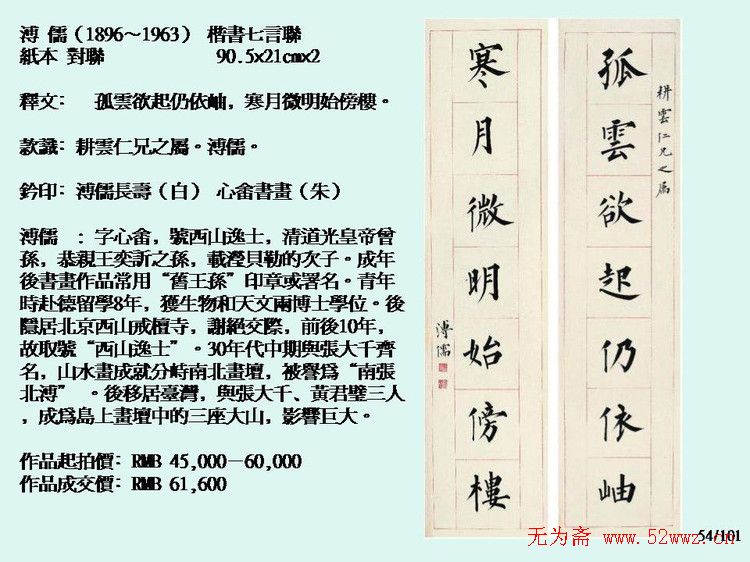 溥 儒（1896～1963） 楷書七言聯
紙本 對聯 90.5x21cmx2
釋文： 孤雲欲起仍依岫，寒月微明始傍樓。
款識：耕雲仁兄之屬。溥儒。
鈐印：溥儒長壽（白） 心畬書畫（朱）
溥儒 ：字心畬，號西山逸士，清道光皇帝曾
孫，恭親王奕訢之孫，載瀅貝勒的次子。成年
後書畫作品常用“舊王孫”印章或署名。青年
時赴德留學8年，獲生物和天文兩博士學位。後
隱居北京西山戒檀寺，謝絕交際，前後10年，
故取號“西山逸士”。30年代中期與張大千齊
名，山水畫成就分峙南北畫壇，被譽爲“南張
北溥” 。後移居臺灣，與張大千、黃君璧三人
，成爲島上畫壇中的三座大山，影響巨大。
作品起拍價：RMB 45,000－60,000
作品成交價：RMB 61,600
耕雲仁兄之屬
孤雲欲起仍依岫
寒月微明始傍樓
溥儒
无为斋 www.52wwz.cn
54/101